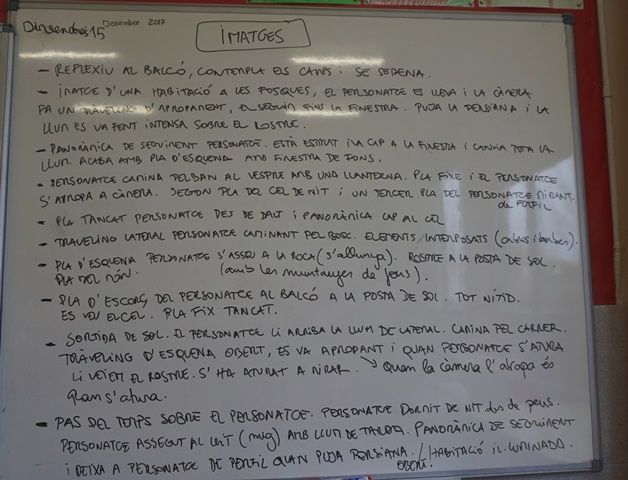 Divendres 15 Desembre 2017
IMATGES
- REFLEXIU AL BALCÓ, CONTEMPLA ELS CAMPS I SE SERENA.
- IMATGE D'UNA HABITACIÓ A LES FOSQUES, EL PERSONATGE ES LLEVA I LA CÀMERA
FA UN TRÀVELING D'APROPAMENT, EL SEGUIM FINS LA FINESTRA. PUJA LA PERSIANA I LA
LLUM ES VA FENT INTENSA SOBRE EL ROSTRE.
- PANORÀMICA DE SEGUIMENT PERSONATGE. ESTÀ ESTIRAT I VA CAP A LA FINESTRA I CANVIA TOTA LA
LLUM. ACABA AMB PLA D'ESQUENA AMB FINESTRA DE FONS.
- PERSONATGE CAMINA PEL BAN AL VESPRE AMB UNA LLANTERNA. PLA FIXE I EL PERSONATGE
S'APROPA A CÀMERA. SEGON PLA DEL CEL DE NIT I UN TERCER PLA DEL PERSONATGE MIRANT
de PERFIL
- PLA TANCAT PERSONATGE DES DE DALT I PANORÀMICA CAP AL CEL
- TRAVELING LATERAL PERSONATGE CAMINANT PEL BOSC. ELEMENTS INTERPOSATS (arbres i branques).
- PLA D'ESQUENA PERSONATGE S'ASSEU A LA ROCA (s'allunya). ROSTRE A LA POSTA DE SOL.
PLA DEL MÓN. (amb les muntanyes de fons).
- PLA D'ESCORÇ DEL PERSONATGE AL BALCÓ A LA POSTA DE SOL. TOT NÍTID.
ES VEU EL CEL. PLA FIX TANCAT.
- SORTIDA DE SOL. EL PERSONATGE LI ARRIBA LA LLUM DE LATERAL. CAMINA PEL CARRER.
TRÀVELING D'ESQUENA OBERT, ES VA APROPANT I QUAN PERSONATGE S'ATURA
LI VEIEM EL ROSTRE. S'HA ATURAT A MIRAR. → Quan la càmera l'atrapa és
quan s'atura.
- PAS DEL TEMPS SOBRE EL PERSONATGE. PERSONATGE DORMIT DE NIT des de peus.
PERSONATGE ASSEGUT AL LLIT (mig) AMB LLUM DE TARDA. PANORÀMICA DE SEGUIMENT
I DEIXA A PERSONATGE DE PERFIL QUAN PUJA PERSIANA. / HABITACIÓ IL·LUMINADA.
OBERT.